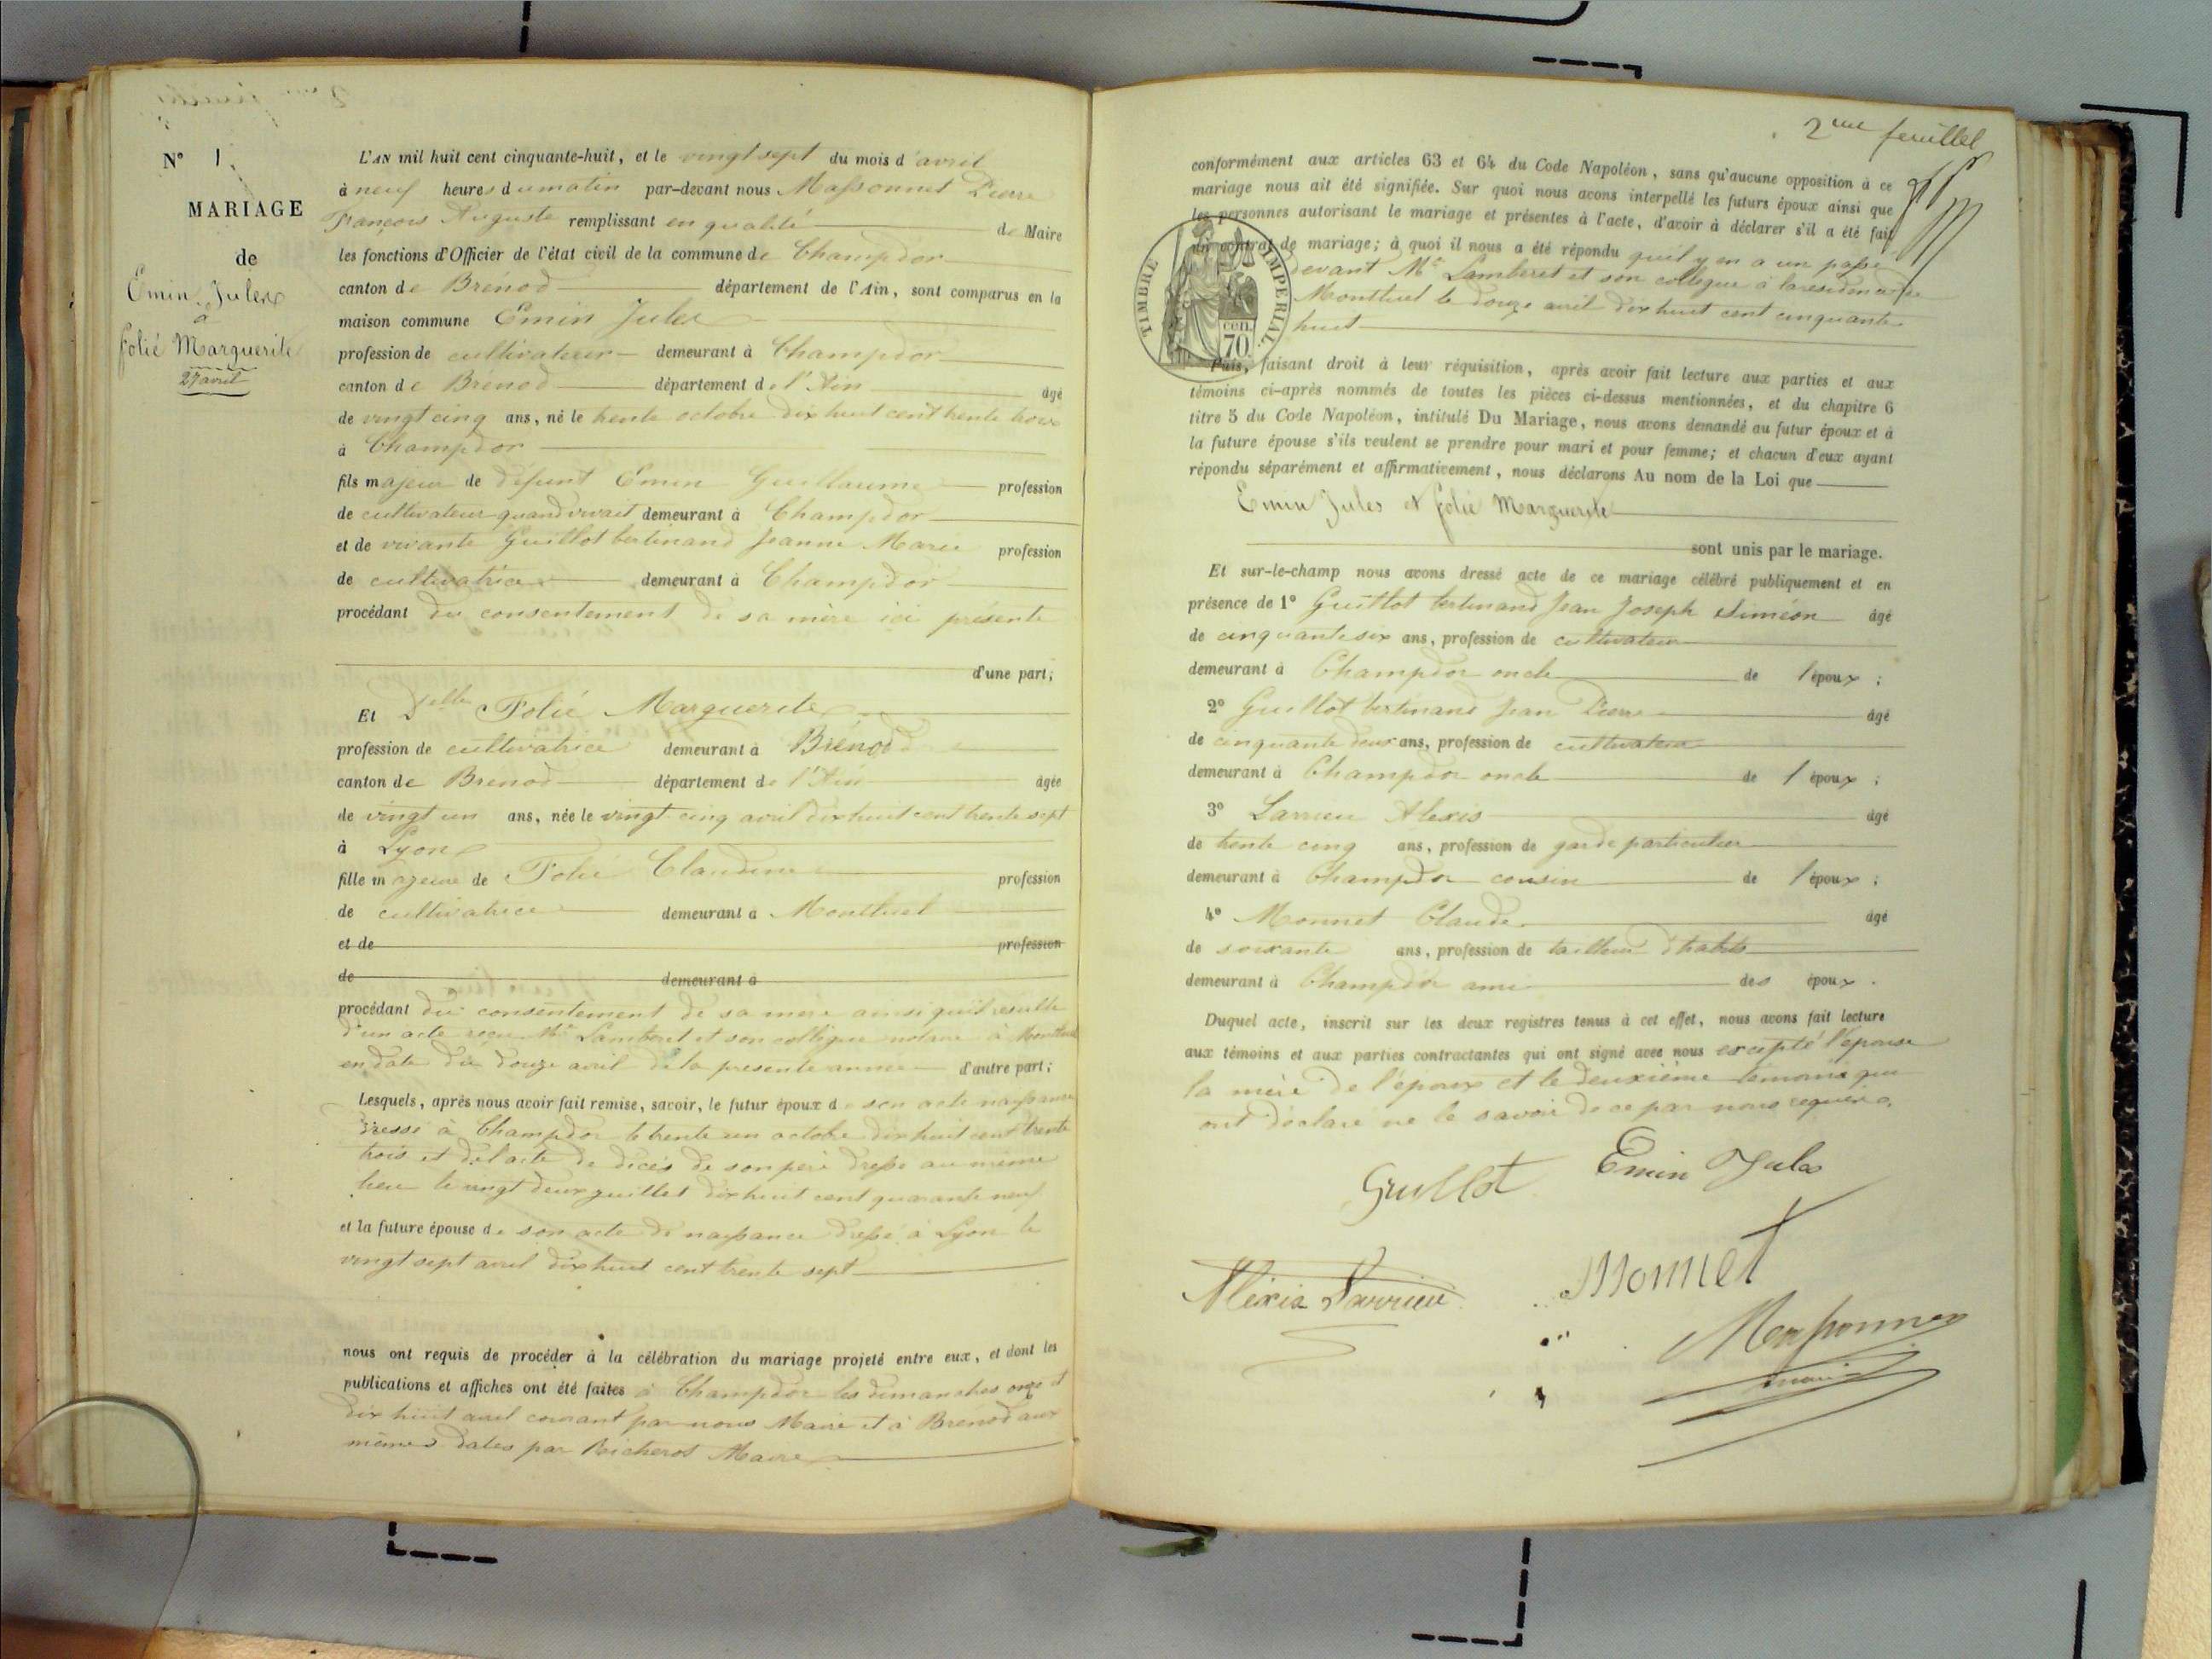 N° 1.
MARIAGE
de
Emin Jules
a
Folié Marguerite
27 avril
L'AN mil huit cent cinquante-huit, et le vingt sept du mois d'avril
à neuf heures du matin par-devant nous Massonnet Pierre
François Auguste remplissant en qualité de Maire
les fonctions d'Officier de l'état civil de la commune de Champdor
canton de Brénod département de l'Ain, sont comparus en la
maison commune Emin Jules
profession de cultivateur demeurant à Champdor
canton de Brénod département de l'Ain âgé
de vingt cinq ans, né le trente octobre dix huit cent trente trois
à Champdor
fils majeur de défunt Emin Guillaume profession
de cultivateur quand vivait demeurant à Champdor
et de vivante Guillot bertinand Jeanne Marie profession
de cultivatrice demeurant à Champdor
procédant du consentement de sa mère ici présente
d'une part;
Et Delle Folié Marguerite
profession de cultivatrice demeurant à Brénod
canton de Brenod département de l'Ain âgée
de vingt un ans, née le vingt cinq avril dix huit cent trente sept
à Lyon
fille majeure de Folié Claudine profession
de cultivatrice demeurant à Montluel
et de profession
de demeurant à
procédant du consentement de sa mère ainsi qu'il resulte
d'un acte reçu Me Lamberet et son collègue notaire à Montluel
en date du douze avril de la presente année d'autre part;
Lesquels, après nous avoir fait remise, savoir, le futur époux de son acte naissance
dressé à Champdor le trente un octobre dix huit cent trente
trois et de l'acte de décès de son père dressé au même
lieu le vingt deux juillet dix huit cent quarante neuf
et la future épouse de son acte de naissance dressé à Lyon le
vingt sept avril dix huit cent trente sept
nous ont requis de procéder à la célébration du mariage projeté entre eux, et dont les
publications et affiches ont été faites à Champdor les dimanches onze et
dix huit avril courant par nous Maire et à Brénod aux
mêmes dates par Richerot Maire
2me feuillet
conformément aux articles 63 et 64 du Code Napoléon, sans qu'aucune opposition à ce
mariage nous ait été signifiée. Sur quoi nous avons interpellé les futurs époux ainsi que
les personnes autorisant le mariage et présentes à l'acte, d'avoir à déclarer s'il a été fait
un contrat de mariage; à quoi il nous a été répondu qu'il y en a un passé
devant Me Lamberet et son collègue à la résidence de
Montluel le douze avril dix huit cent cinquante
huit
TIMBRE IMPERIAL.
cen.
70
Puis, faisant droit à leur réquisition, après avoir fait lecture aux parties et aux
témoins ci-après nommés de toutes les pièces ci-dessus mentionnées, et du chapitre 6
titre 5 du Code Napoléon, intitulé Du Mariage, nous avons demandé au futur époux et à
la future épouse s'ils veulent se prendre pour mari et pour femme; et chacun d'eux ayant
répondu séparément et affirmativement, nous déclarons Au nom de la Loi que
Emin Jules et folié Marguerite
sont unis par le mariage.
Et sur-le-champ nous avons dressé acte de ce mariage célébré publiquement et en
présence de 1° Guillot bertinand Jean Joseph Siméon âgé
de cinquante six ans, profession de cultivateur
demeurant à Champdor oncle de l'époux;
2° Guillot bertinand Jean Pierre âgé
de cinquante deux ans, profession de cultivateur
demeurant à Champdor oncle de l'époux;
3° Larrieu Alexis âgé
de trente cinq ans, profession de garde particulier
demeurant à Champdor cousin de l'époux;
4° Monnet Claude âgé
de soixante ans, profession de tailleur d'habits
demeurant à Champdor ami des époux.
Duquel acte, inscrit sur les deux registres tenus à cet effet, nous avons fait lecture
aux témoins et aux parties contractantes qui ont signé avec nous excepté l'épouse
la mère de l'époux et le deuxième témoins qui
ont déclaré ne le savoir de ce par nous requis.
Guillot Emin Jules
Alexis Larrieu Monnet
Massonnet
maire